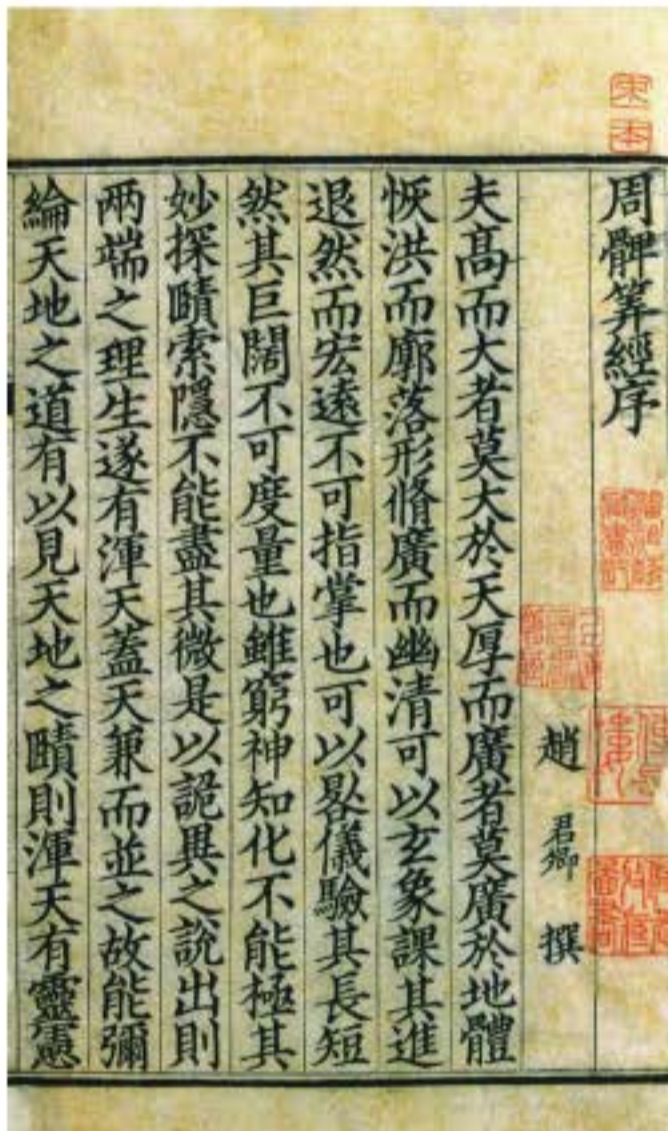 宋本
周髀筭經序
趙君卿撰
夫髙而大者莫大於天厚而廣者莫廣於地體
恢洪而廓落形脩廣而幽清可以玄象課其進
退然而宏逺不可指掌也可以晷儀驗其長短
然其巨闊不可度量也雖窮神知化不能極其
妙探賾索隱不能盡其微是以詭異之說出則
兩端之理生遂有渾天蓋天兼而並之故能彌
綸天地之道有以見天地之賾則渾天有靈憲